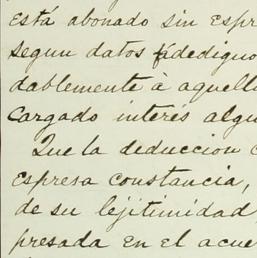 está abonado sin espre
segun datos fidedigno
dablemente à aquell
cargado interés algu
Que la deduccion
espresa constancia,
de su lejitimidad
presada en el acue